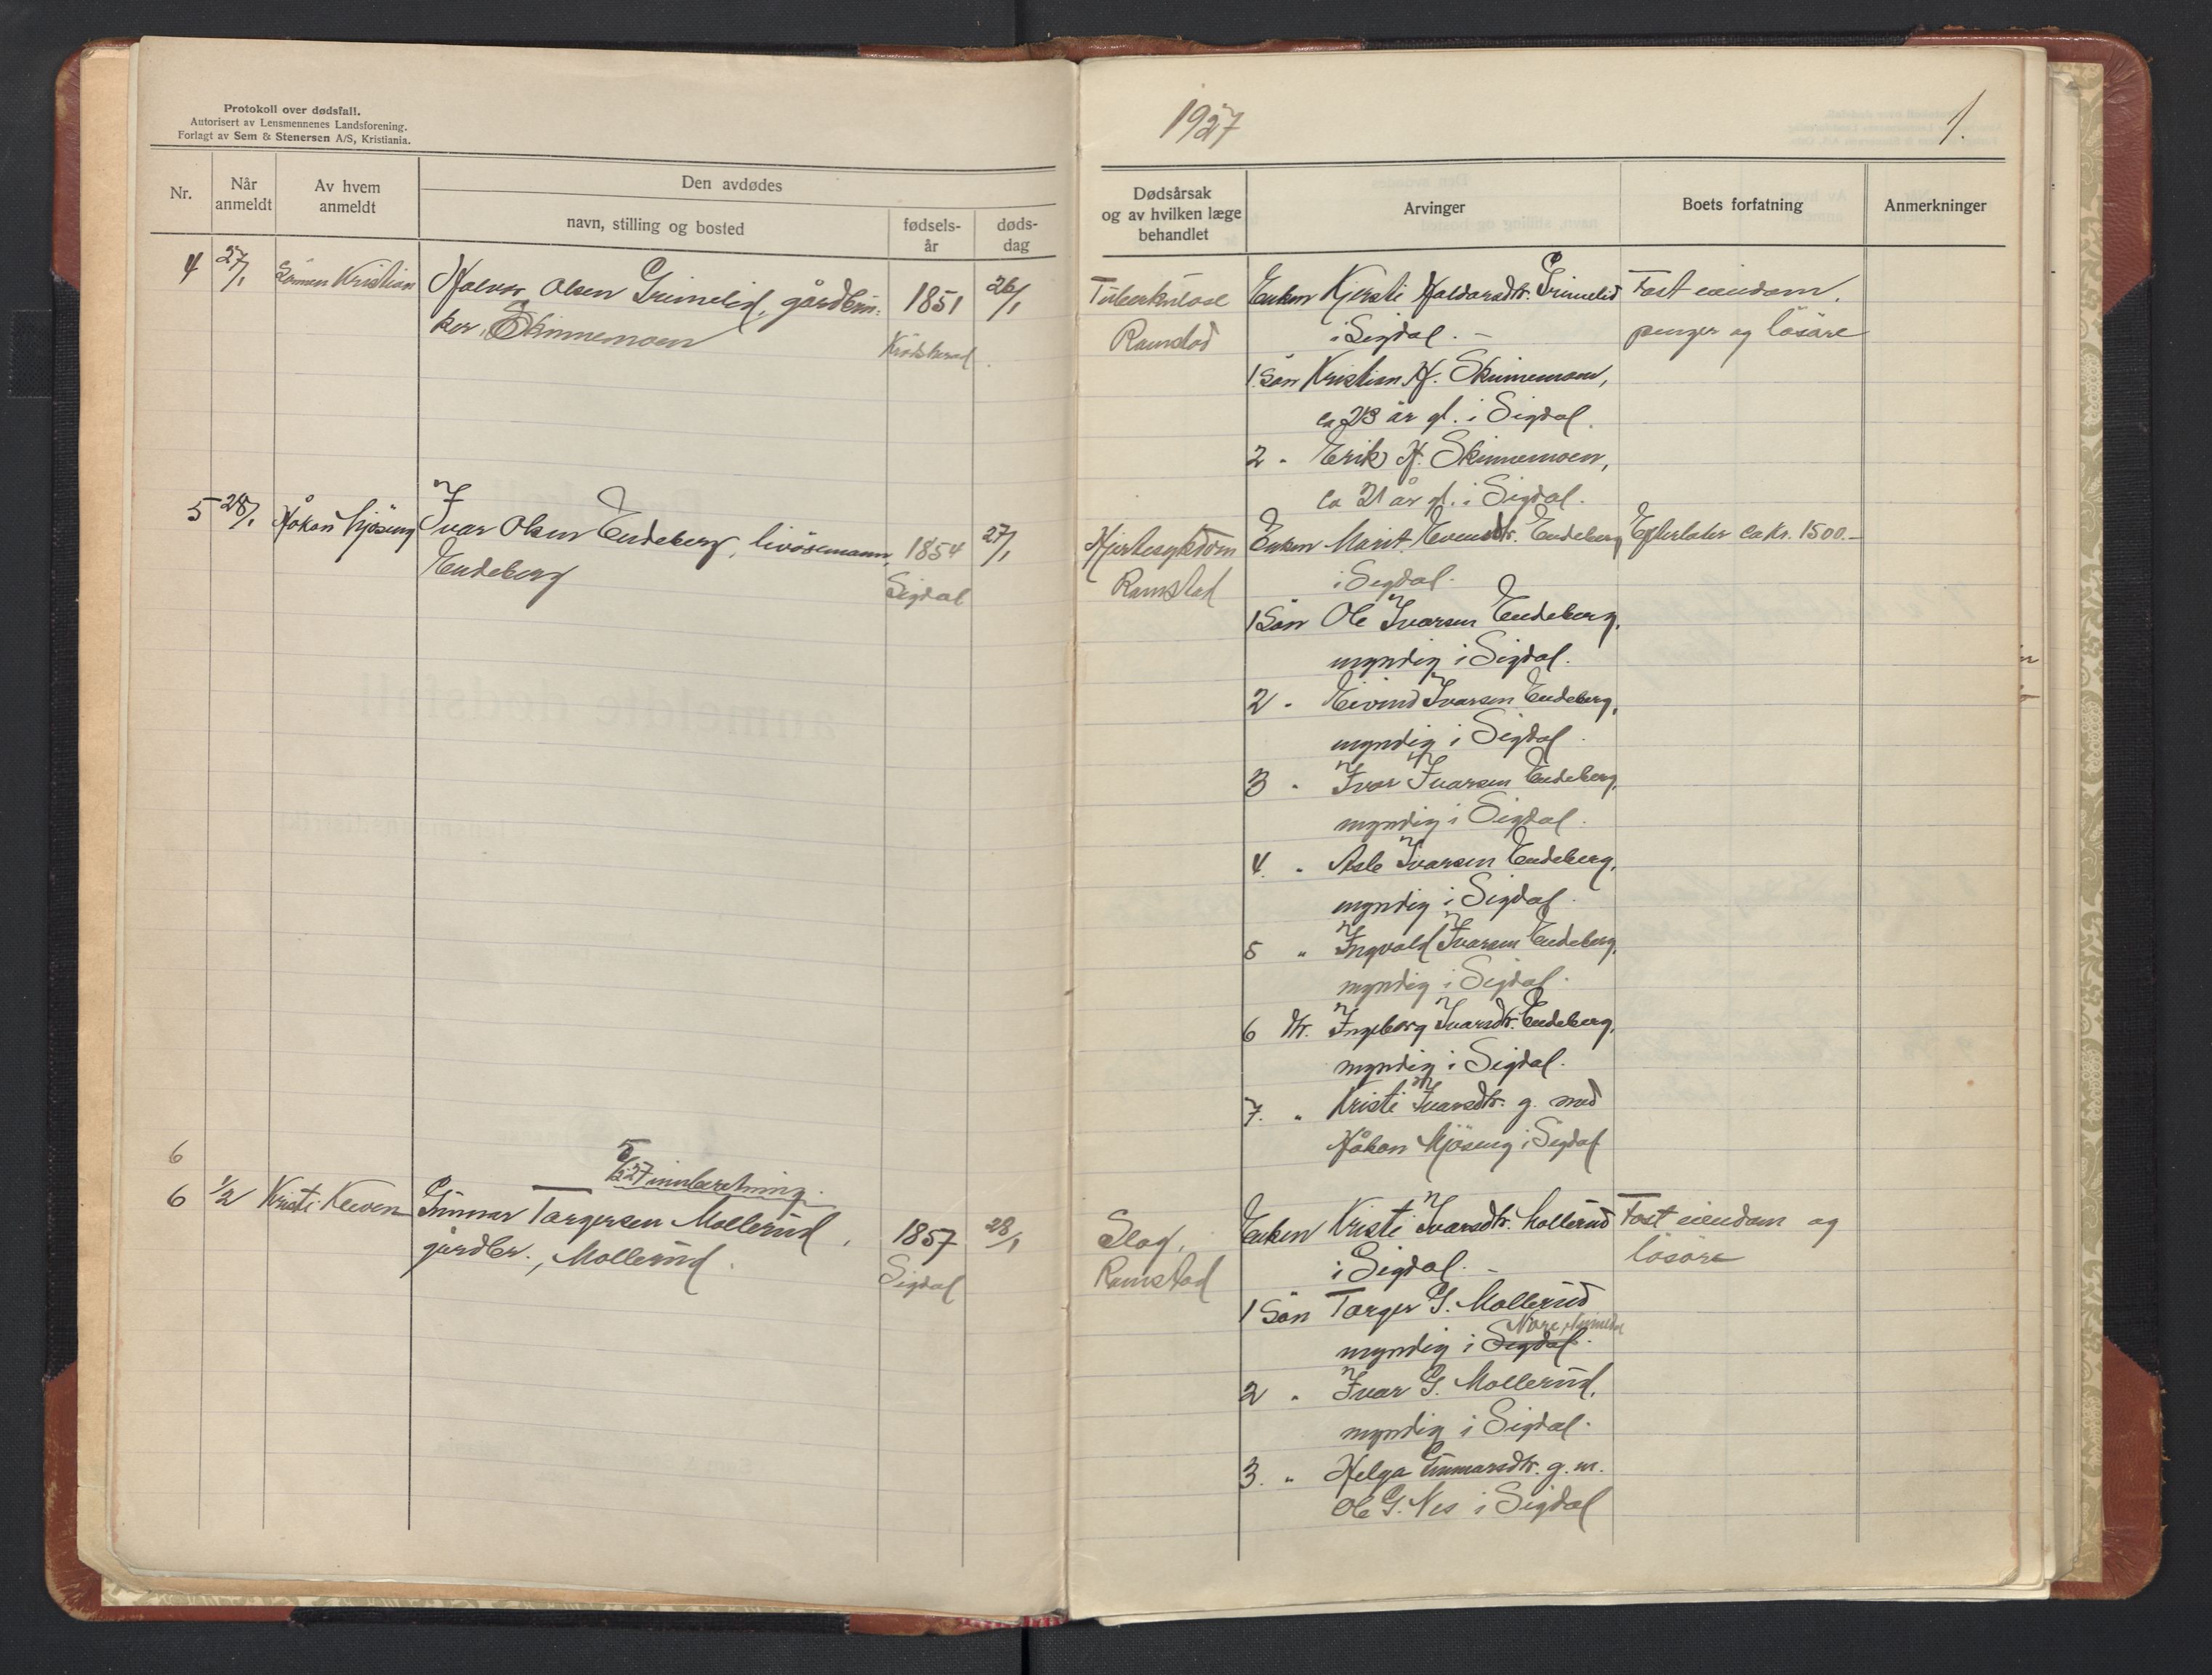 Protokoll over dødsfall.
Autorisert av Lensmennenes Landsforening.
Forlagt av Sem & Stenersen A/S, Kristiania.
Nr.
Når anmeldt
Av hvem anmeldt
Den avdødes
navn, stilling og bosted
fødsels-år
døds-dag
4 27/1 Sønnen Kristian Halvor Olsen Grimelid, gårdbru- 1851 26/1
ker, Skinnemoen
Krødsherad
5 28/1 Håkon Mjøseng Ivar Olsen Endeberg, livøsemann, 1854 27/1
Endeberg Sigdal
6
5/2 27 innberetning.
6 1/2 Kristi Kleven Gunnar Torgersen Mollerud, 1857 28/1
gårdbr., Mollerud. Sigdal
1927
1.
Dødsårsak
og av hvilken læge
behandlet
Arvinger
Boets forfatning
Anmerkninger
Tuberkulose Enken Kjersti Haldorsdtr. Grimelid Fast eiendom,
Ramstad i Sigdal. - penger og løsøre
1 Søn Kristian H. Skinnemoen,
ca 23 år gl. i Sigdal.
2 " Erik H. Skinnemoen,
ca 21 år gl. i Sigdal.
Hjertesykdom Enken Marit Evensdtr. Endeberg Efterlater ca kr. 1500.-
Ramstad i Sigdal.
1 Søn Ole Ivarsen Endeberg,
myndig i Sigdal.
2 " Eivind Ivarsen Endeberg,
myndig i Sigdal.
3 " Ivar Ivarsen Endeberg,
myndig i Sigdal.
4. " Asle Ivarsen Endeberg,
myndig i Sigdal.
5 " Ingvald Ivarsen Endeberg,
myndig i Sigdal.
6 Dtr. Ingeborg Ivarsdtr. Endeberg,
myndig i Sigdal.
7. " Kristi Ivarsdtr. g. med
Håkon Mjøseng i Sigdal
Slag, Enken Kristi Ivarsdtr. Mollerud Fast eiendom og
Ramstad i Sigdal. - løsøre
1 Søn Torger G. Mollerud
Nore,
myndig i Sigdal.
2 " Ivar G. Mollerud,
myndig i Sigdal.
3. " Helga Gunnarsdtr. g. m.
Ole G. Nes i Sigdal